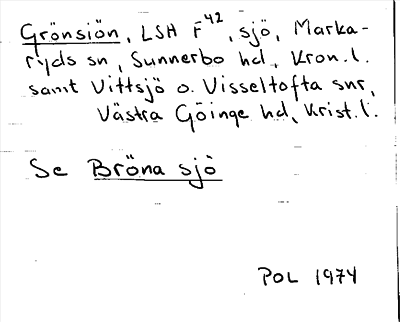 Grönsiön, LSH F⁴², sjö, Marka-
ryds sn, Sunnerbo hd, Kron.l.
samt Vittsjö o. Visseltofta snr,
Västra Göinge hd, Krist.l.
Se Bröna sjö
POL 1974